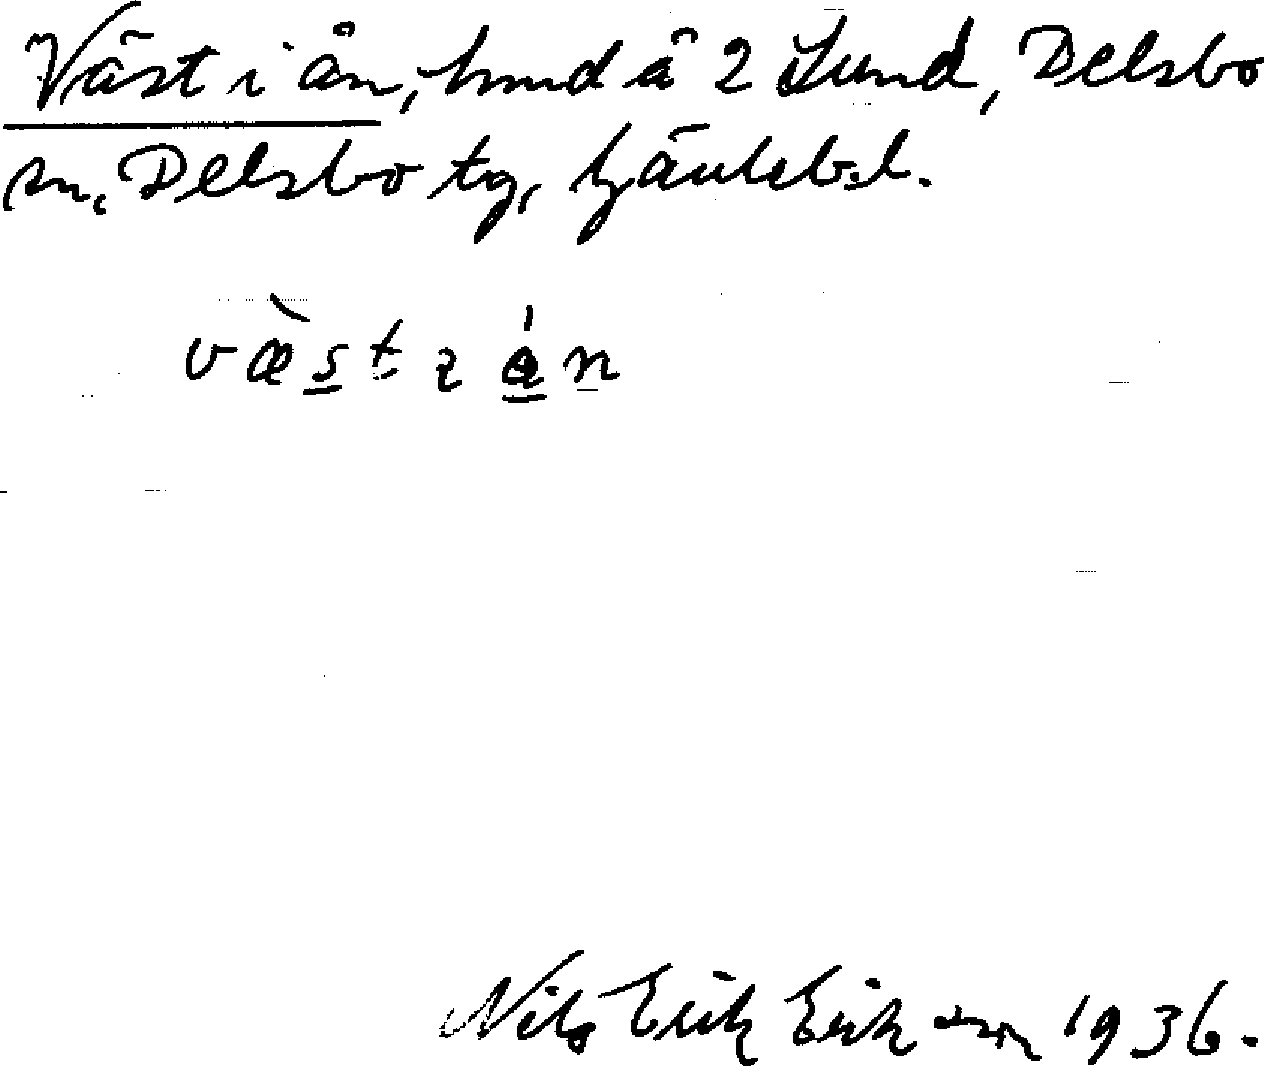 Väst i ån, hmd å 2 Lund, Delsbo
sn, Delsbo tg, Gävlebs.l.
væ̀st ɩ án
Nils Erik Eriksson 1936.